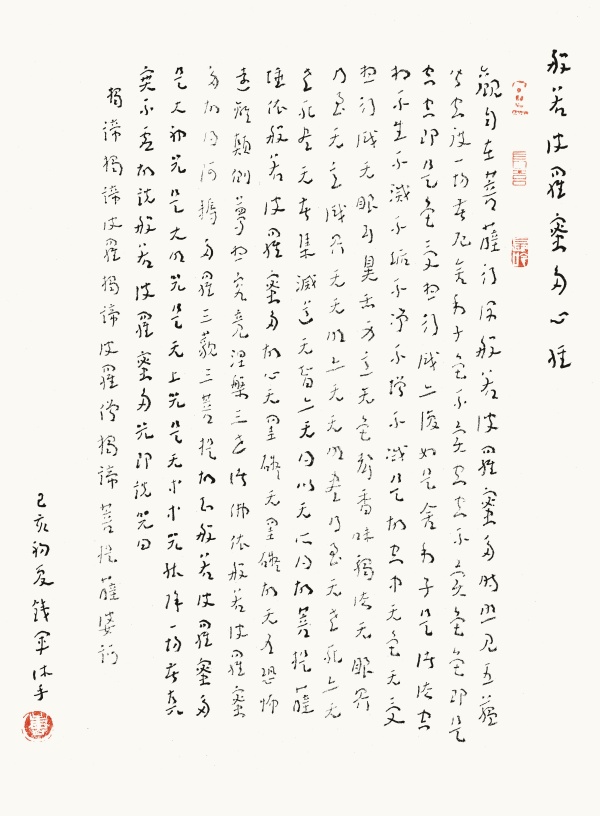 般若波羅蜜多心經
觀自在菩薩行深般若波羅蜜多時照見五蘊
皆空度一切苦厄舍利子色不異空空不異色色即是
空空即是色受想行識亦復如是舍利子是諸法空
相不生不滅不垢不淨不增不減是故空中无色无受
想行識无眼耳鼻舌身意无色聲香味觸法无眼界
乃至无意識界无无明亦无无明盡乃至无老死亦无
老死盡无苦集滅道无智亦无得以无所得故菩提薩
埵依般若波羅蜜多故心无罣礙无罣礙故无有恐怖
遠離顛倒夢想究竟涅槃三世諸佛依般若波羅蜜
多故得阿耨多羅三藐三菩提故知般若波羅蜜多
是大神咒是大明咒是无上咒是无等等咒能除一切苦真
實不虛故說般若波羅蜜多咒即說咒曰
揭諦揭諦波羅揭諦波羅僧揭諦菩提薩婆訶
己亥初夏錢軍沐手